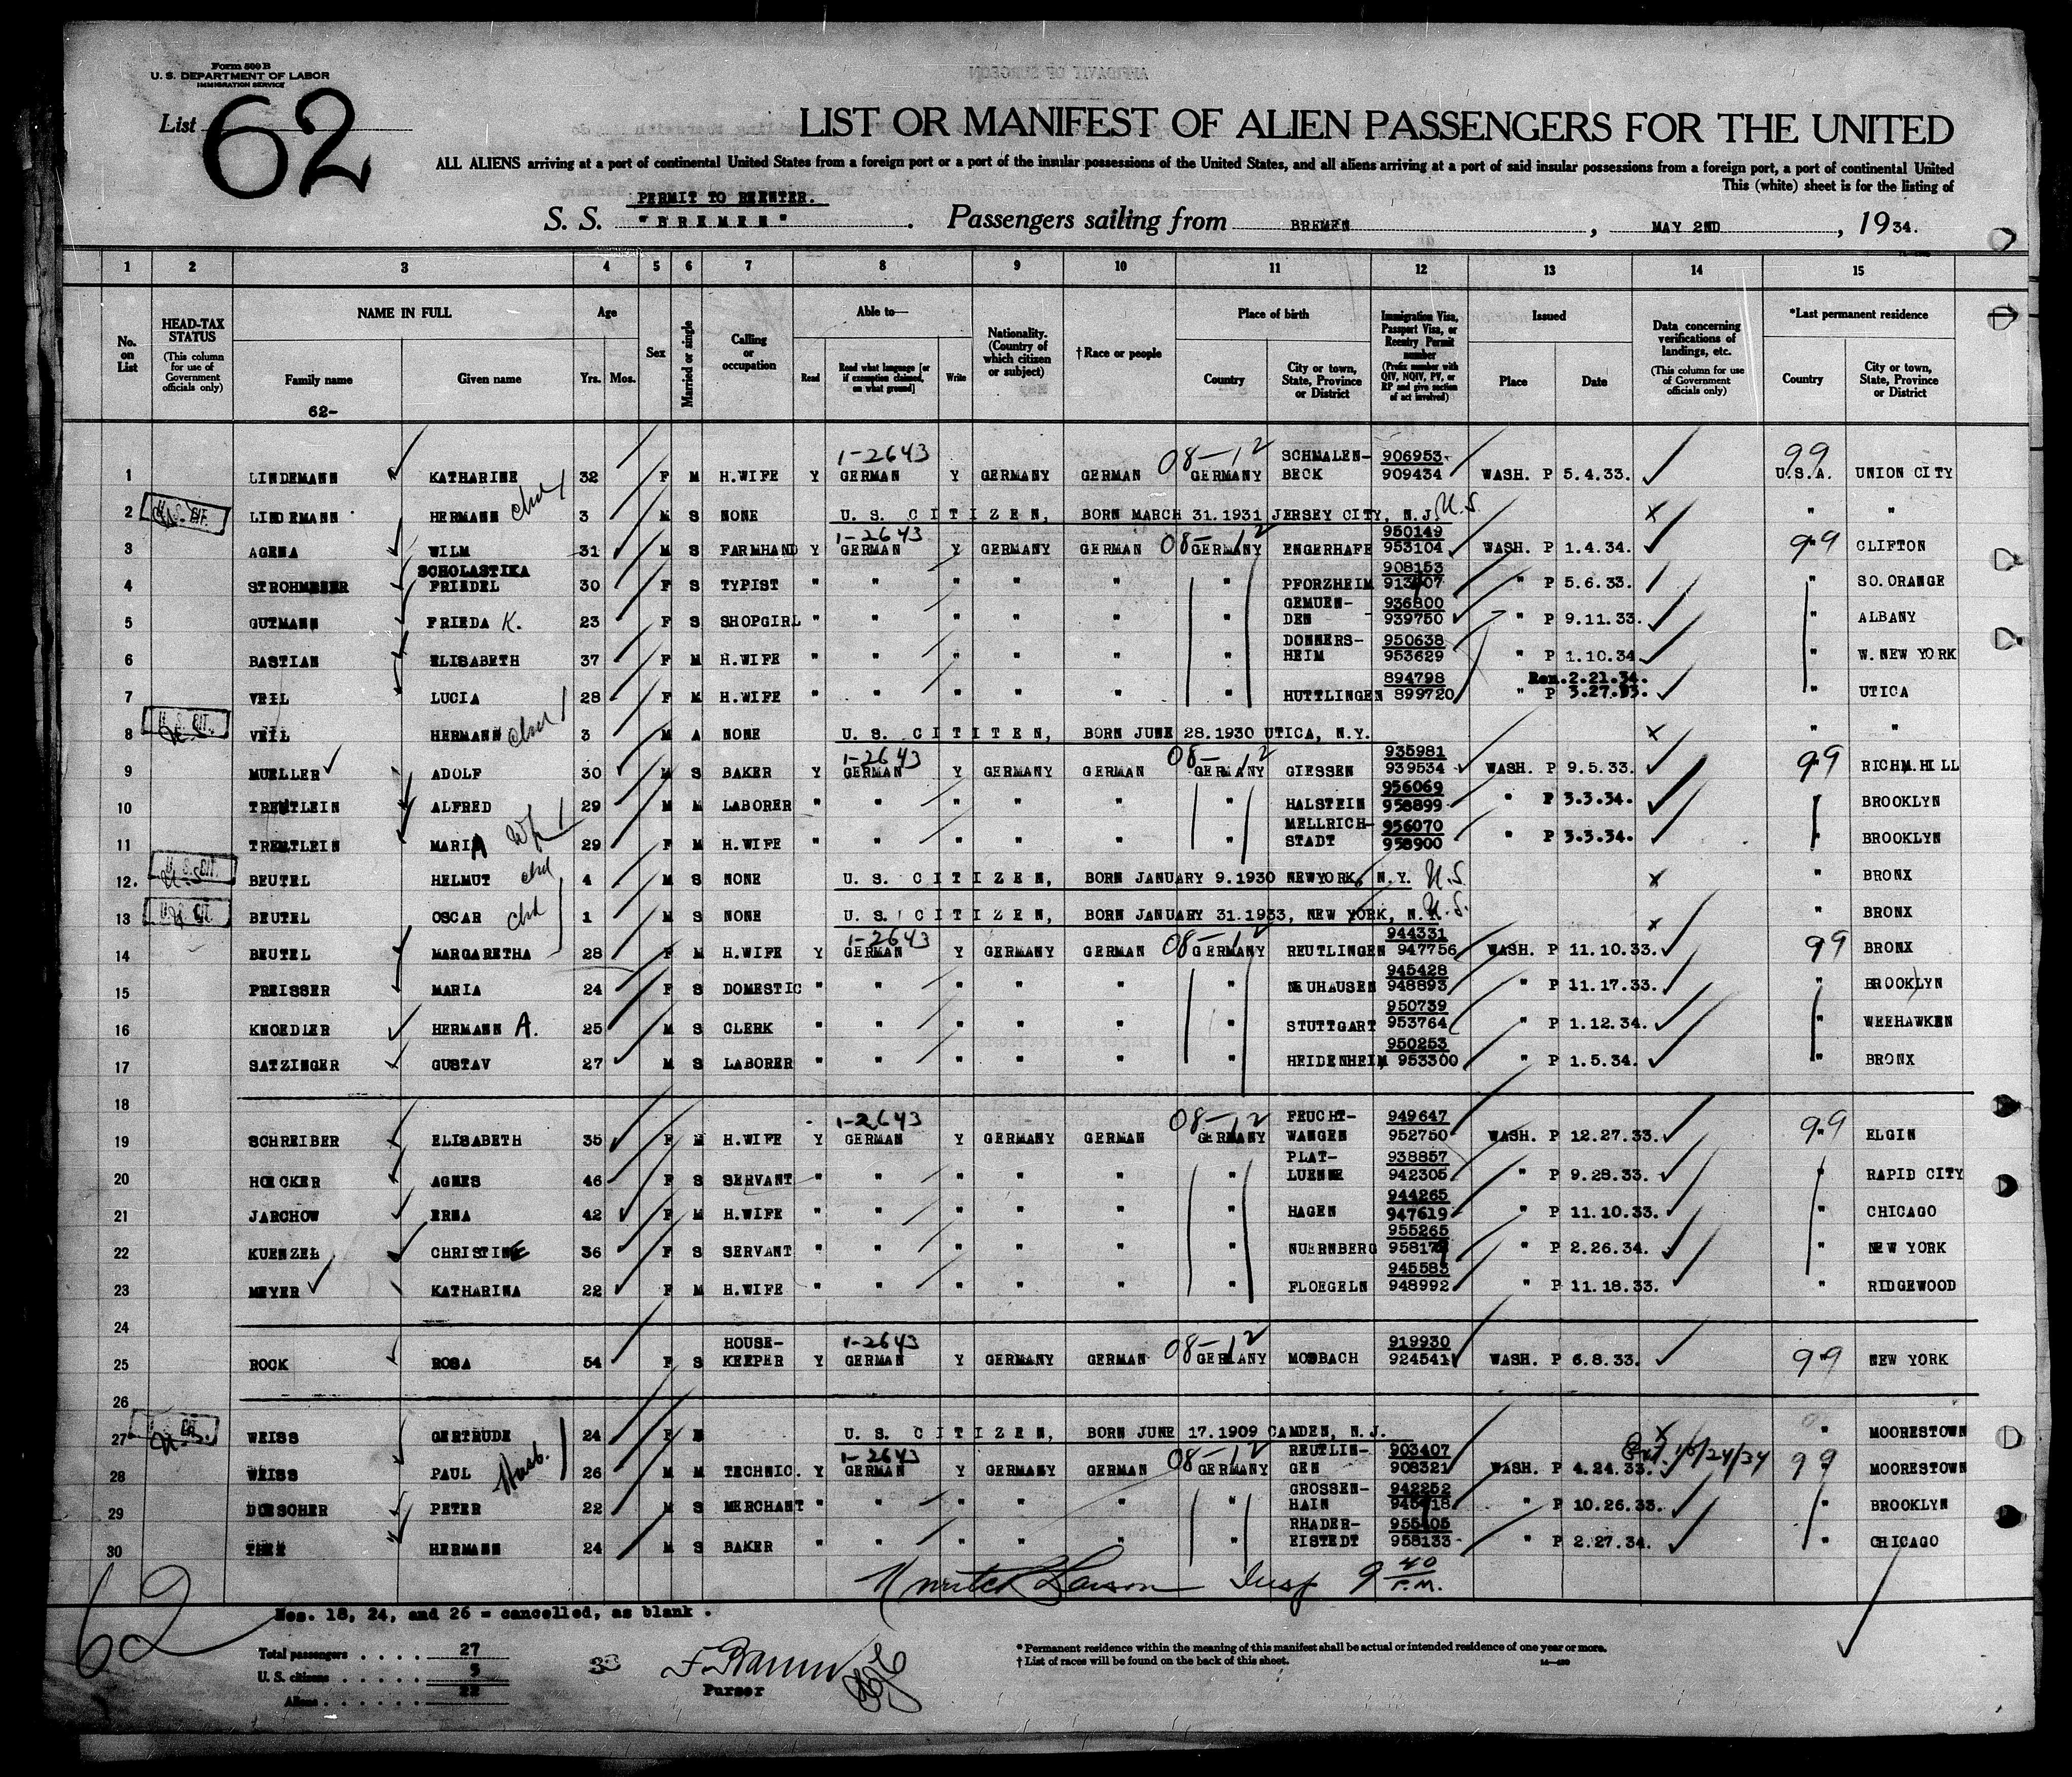 Form 500 B
U. S. DEPARTMENT OF LABOR
IMMIGRATION SERVICE
List 62
LIST OR MANIFEST OF ALIEN PASSENGERS FOR THE UNITED
ALL ALIENS arriving at a port of continental United States from a foreign port or a port of the insular possessions of the United States, and all aliens arriving at a port of said insular possessions from a foreign port, a port of continental United
This (white) sheet is for the listing of
PERMIT TO REENTER.
S. S. "BREMEN" . Passengers sailing from BREMEN , MAY 2ND , 1934.
1 2 3 4 5 6 7 8 9 10 11 12 13 14 15
No. on List
HEAD-TAX STATUS (This column for use of Government officials only)
NAME IN FULL
Family name
Given name
62-
Age
Yrs. Mos.
Sex
Married or single
Calling or occupation
Able to—
Read
Read what language [or if exemption claimed, on what ground]
Write
Nationality. (Country of which citizen or subject)
†Race or people
Place of birth
Country
City or town, State, Province or District
Immigration Visa, Passport Visa, or Reentry Permit number (Prefix number with QIV, NQIV, PV, or RP and give section of act involved)
Issued
Place
Date
Data concerning verifications of landings, etc. (This column for use of Government officials only)
*Last permanent residence
Country
City or town, State, Province or District
1-2643 08-12 SCHMALEN- 906953 99
1 LINDEMANN KATHARINE 32 F M H.WIFE Y GERMAN Y GERMANY GERMAN GERMANY BECK 909434 WASH. P 5.4.33. U.S.A. UNION CITY
2 U.S. CIT. LINDEMANN HERMANN chd 3 M S NONE U. S. CITIZEN, BORN MARCH 31.1931 JERSEY CITY, N.J. U.S. " "
1-2643 08-12 950149
3 AGENA WILM 31 M S FARMHAND Y GERMAN Y GERMANY GERMAN GERMANY ENGERHAFE 953104 WASH. P 1.4.34. 99 CLIFTON
SCHOLASTIKA 908153
4 STROHMEIER FRIEDEL 30 F S TYPIST " " " " " " PFORZHEIM " P 5.6.33. " SO.ORANGE
GEMUEN- 936800
5 GUTMANN FRIEDA K. 23 F S SHOPGIRL " " " " " " DEN 939750 " P 9.11.33. " ALBANY
DONNERS- 950638
6 BASTIAN ELISABETH 37 F M H.WIFE " " " " " " HEIM 953629 " P 1.10.34 " W.NEW YORK
894798 Ren.2.21.34.
7 VEIL LUCIA 28 F M H.WIFE " " " " " " HUTTLINGEN 899720 " P 3.27.33. " UTICA
8 U.S. CIT. VEIL HERMANN chd 3 M A NONE U. S. CITITEN, BORN JUNE 28.1930 UTICA, N.Y. " "
1-2643 08-12 935981
9 MUELLER ADOLF 30 M S BAKER Y GERMAN Y GERMANY GERMAN GERMANY GIESSEN 939534 WASH. P 9.5.33. 99 RICHM.HILL
956069
10 TREMTLEIN ALFRED 29 M M LABORER " " " " " " HALSTEIN 958899 " P 3.3.34. " BROOKLYN
MELLRICH- 956070
11 TREMTLEIN MARIA wf 29 F M H.WIFE " " " " " " STADT 958900 " P 3.3.34. " BROOKLYN
12. U.S. CIT. BEUTEL HELMUT chd 4 M S NONE U. S. CITIZEN, BORN JANUARY 9.1930 NEWYORK, N.Y. U.S. " BRONX
13 U.S. CIT. BEUTEL OSCAR chd 1 M S NONE U. S. CITIZEN, BORN JANUARY 31.1933, NEW YORK, N.Y. U.S. " BRONX
1-2643 08-12 944331
14 BEUTEL MARGARETHA 28 F M H.WIFE Y GERMAN Y GERMANY GERMAN GERMANY REUTLINGEN 947756 WASH. P 11.10.33. 99 BRONX
945428
15 PREISSER MARIA 24 F S DOMESTIC " " " " " " NEUHAUSEN 948893 " P 11.17.33. " BROOKLYN
950739
16 KNOEDLER HERMANN A. 25 M S CLERK " " " " " " STUTTGART 953764 " P 1.12.34. " WEEHAWKEN
950253
17 SATZINGER GUSTAV 27 M S LABORER " " " " " " HEIDENHEIM 953300 " P 1.5.34. " BRONX
18
1-2643 08-12 FEUCHT- 949647
19 SCHREIBER ELISABETH 35 F M H.WIFE Y GERMAN Y GERMANY GERMAN GERMANY WANGEN 952750 WASH. P 12.27.33. 99 ELGIN
PLAT- 938857
20 HOECKER AGNES 46 F S SERVANT " " " " " " LUENNE 942305 " P 9.28.33. " RAPID CITY
944265
21 JARCHOW ERNA 42 F M H.WIFE " " " " " " HAGEN 947619 " P 11.10.33. " CHICAGO
955265
22 KUENZEL CHRISTINE 36 F S SERVANT " " " " " " NUERNBERG " P 2.26.34. " NEW YORK
945583
23 MEYER KATHARINA 22 F M H.WIFE " " " " " " FLOEGELN 948992 " P 11.18.33. " RIDGEWOOD
24
HOUSE- 1-2643 08-12 919930
25 ROCK ROSA 54 F S KEEPER Y GERMAN Y GERMANY GERMAN GERMANY MOSBACH 924541 WASH. P 6.8.33. 99 NEW YORK
26
27 U.S. CIT. WEISS GERTRUDE 24 F M U. S. CITIZEN, BORN JUNE 17.1909 CAMDEN, N.J. " MOORESTOWN
1-2643 08-12 REUTLIN- 903407
28 WEISS PAUL Husb. 26 M M TECHNIC. Y GERMAN Y GERMANY GERMAN GERMANY GEN 908321 WASH. P 4.24.33. 99 MOORESTOWN
GROSSEN- 942252
29 DOESCHER PETER 22 M S MERCHANT " " " " " " HAIN " P 10.26.33. " BROOKLYN
RHADER- 955405
30 THEE HERMANN 24 M S BAKER " " " " " " EISTEDT 958133 " P 2.27.34. " CHICAGO
Larson Insp 9 40 P.M.
62
Nos. 18, 24, and 26 = cancelled, as blank .
Total passengers . . . . 27
U. S. citizens . . . . . 5
Aliens . . . . . . 22
33
Purser
* Permanent residence within the meaning of this manifest shall be actual or intended residence of one year or more.
† List of races will be found on the back of this sheet.